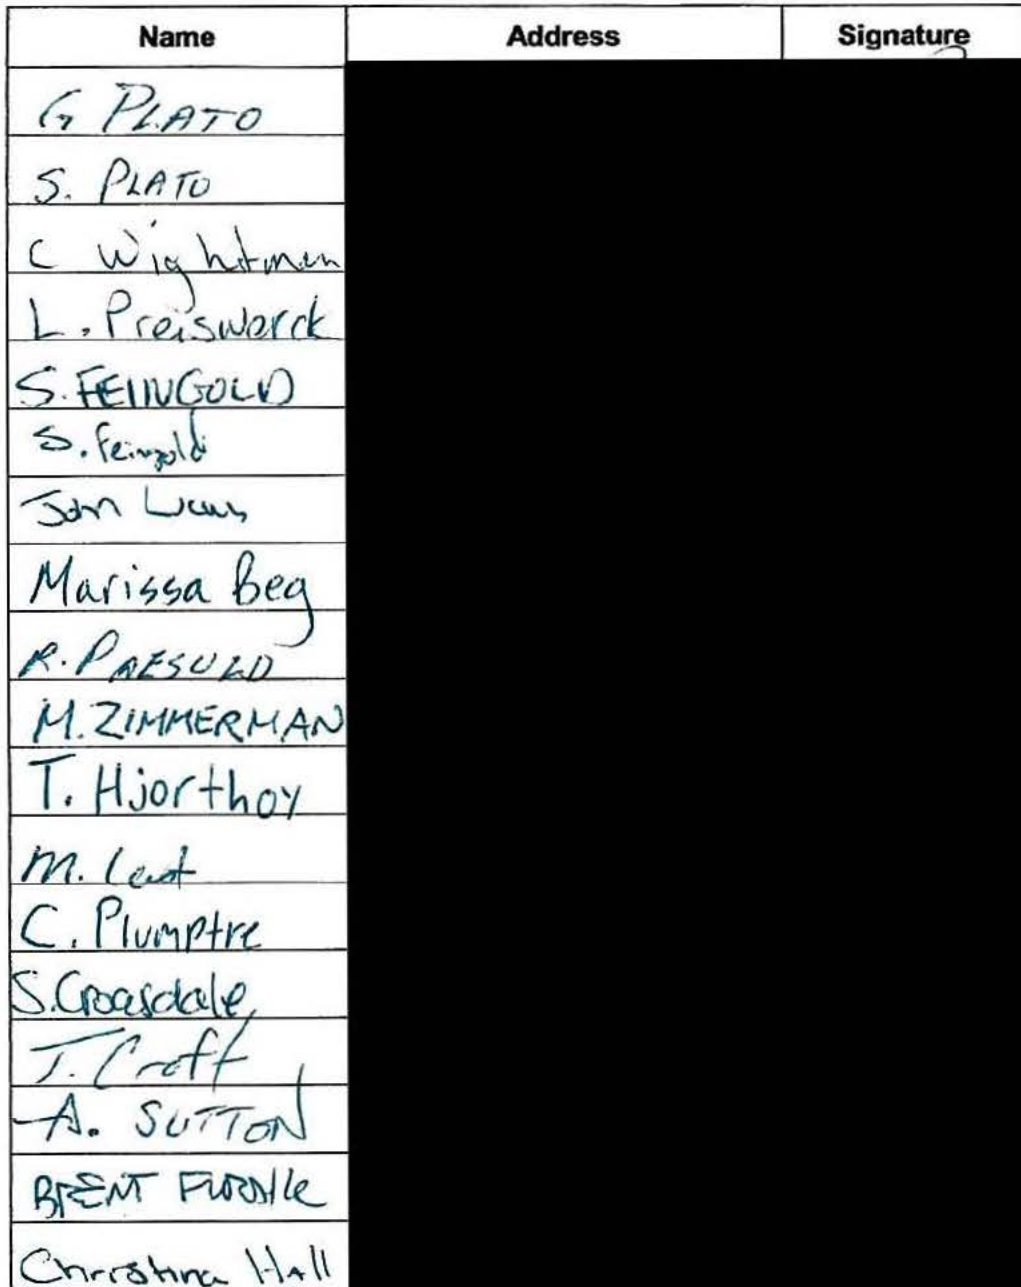 Name Address Signature
G PLATO
S. PLATO
C Wightman
L. Preiswerck
S. FEINGOLD
S. Feingold
Marissa Beg
R. PAESULD
M. ZIMMERMAN
T. Hjorthoy
M.
C. Plumptre
S. Croasdale
T. Croft
A. SUTTON
BRENT
Christina Hall